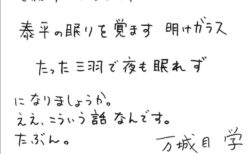 泰平の眠りを覚ます 明けガラス
たった三羽で夜も眠れず
になりましょうか。
ええ、こういう話なんです。
たぶん。
万城目 学